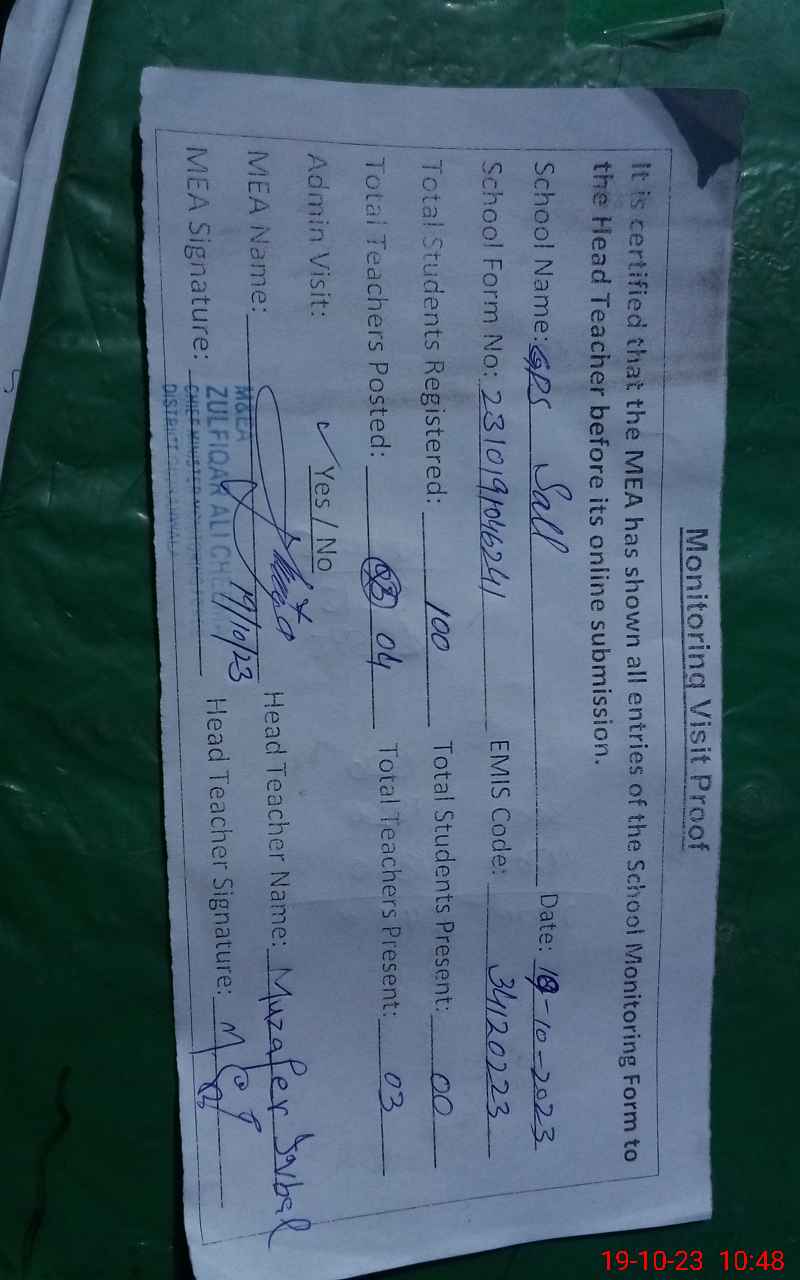 Monitoring Visit Proof
It is certified that the MEA has shown all entries of the School Monitoring Form to
the Head Teacher before its online submission.
School Name: GPS Sall Date: 19-10-2023
School Form No: 2310191046241 EMIS Code: 34120223
Total Students Registered: 100 Total Students Present: 00
Total Teachers Posted: 04 Total Teachers Present: 03
Admin Visit: ✓ Yes / No
MEA Name: Head Teacher Name: Muzafer Iqbal
MEA Signature: 19/10/23 Head Teacher Signature:
M&EA
ZULFIQAR ALI
19-10-23 10:48